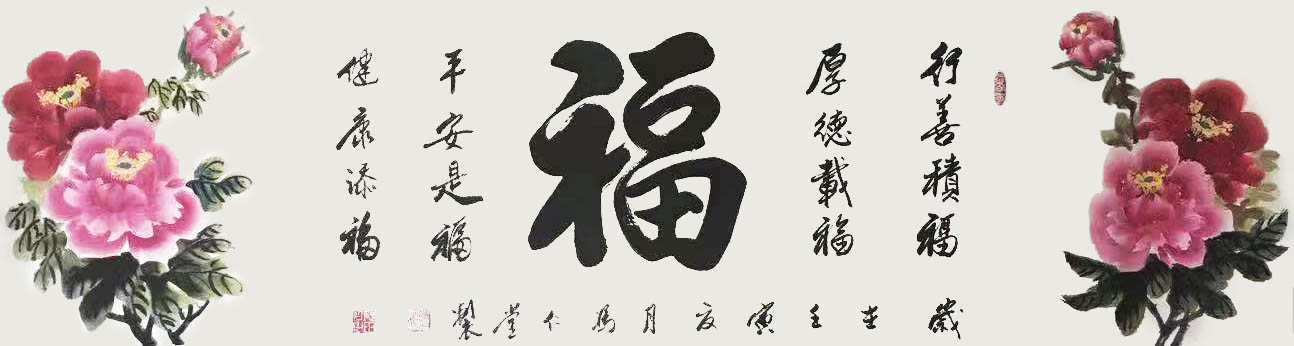 行善積福
厚德載福
福
平安是福
健康添福
歲在壬寅夏月仁堂製